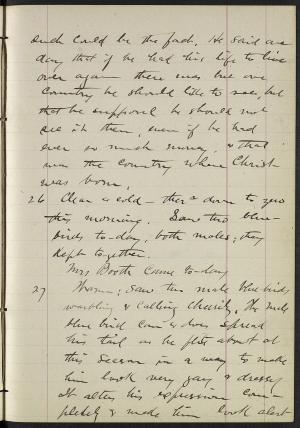 such could be the fact. He said one
day that if he had his life to live
over again there was but one
country he should like to see, but
that he supposed he should not
see it then, even if he had
ever so much money, & that
was the country where Christ
was born.
26 Clear & cold – ther. down to zero
this morning. Saw two blue-
birds to-day, both males; they
kept together.
Mrs Booth came to-day
27 Warm; Saw the male blue birds
warbling & calling cheerily. The male
blue bird can & does spread
his tail as he flits about at
this season in a way to make
him look very gay & dressy
It alters his expression com-
pletely & made him look alert